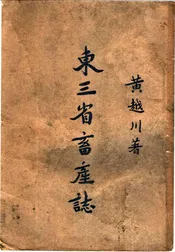 黃越川著
東三省畜產誌